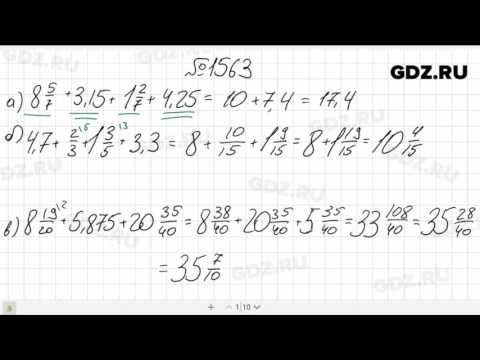 №1563
GDZ.RU
а) 8 5/7 + 3,15 + 1 2/7 + 4,25 = 10 + 7,4 = 17,4
б) 4,7 + 2/3 \5 + 1 3/5 \3 + 3,3 = 8 + 10/15 + 1 9/15 = 8 + 1 19/15 = 10 4/15
в) 8 19/20 \2 + 5,875 + 20 35/40 = 8 38/40 + 20 35/40 + 5 35/40 = 33 108/40 = 35 28/40
= 35 7/10
1 10